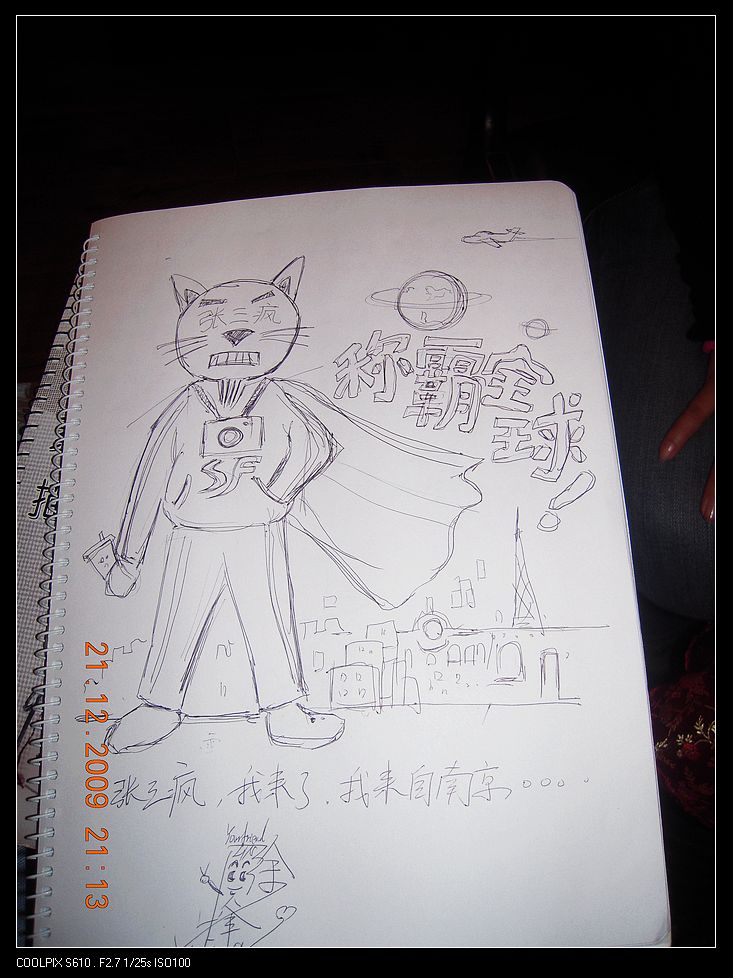 张三疯
称霸全球!
SF
张三疯，我来了，我来自南京。。。。
Your friend
21.12.2009 21:13
COOLPIX S610 . F2.7 1/25s ISO100